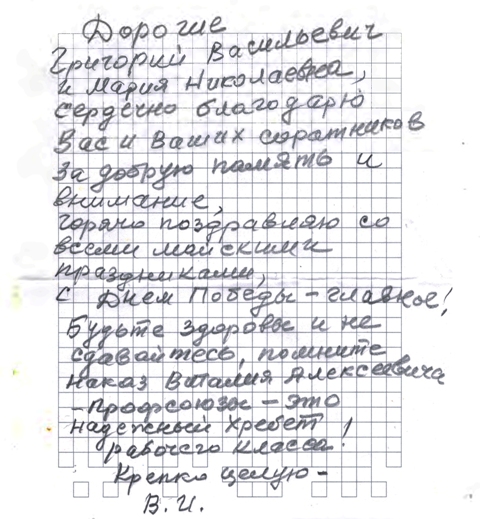 Дорогие
Григорий Васильевич
и Мария Николаевна,
сердечно благодарю
Вас и Ваших соратников
за добрую память и
внимание,
горячо поздравляю со
всеми майскими
праздниками,
с Днем Победы - главное!
Будьте здоровы и не
сдавайтесь, помните
наказ Виталия Алексеевича
- Профсоюзы - это
надежный хребет
рабочего класса!
Крепко целую -
В. И.